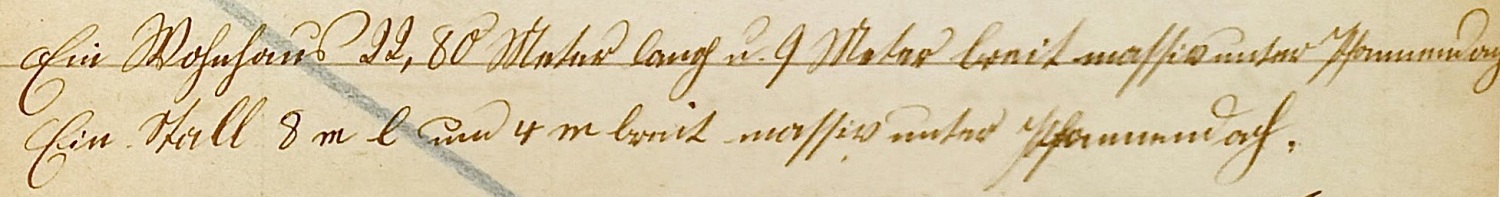 Ein Wohnhaus 22,80 Meter lang u. 9 Meter breit massiv unter Pfannendach
Ein Stall 8 m l und 4 m breit massiv unter Pfannendach.